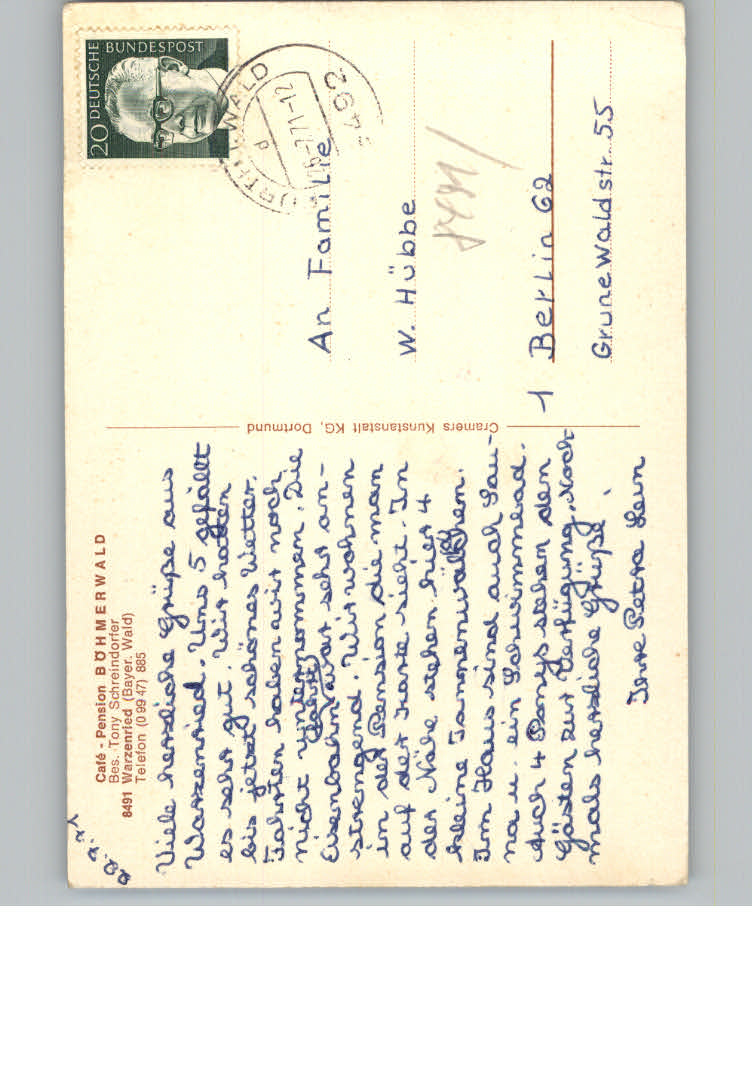 Café - Pension BÖHMERWALD
Bes. Tony Schreindorfer
8491 Warzenried (Bayer. Wald)
Telefon (0 99 47) 885
Viele herzliche Grüße aus
Warzenried. Uns 5 gefällt
es sehr gut. Wir hatten
bis jetzt schönes Wetter.
Fahrten haben wir noch
nicht unternommen. Die
Eisenbahnfahrt war sehr an-
strengend. Wir wohnen
in der Pension die man
auf der Karte sieht. In
der Nähe stehen hier 4
kleine Tannenwäldchen.
Im Haus sind auch Sau-
na u. ein Schwimmbad.
Auch 4 Ponys stehen den
Gästen zur Verfügung. Noch
mals herzliche Grüße,
Ihre Petra
Cramers Kunstanstalt KG, Dortmund
DEUTSCHE BUNDESPOST
20
8492
FURTH I WALD
-7.71-12
d
An Familie
W. Hübbe
1 Berlin 62
Grunewaldstr. 55